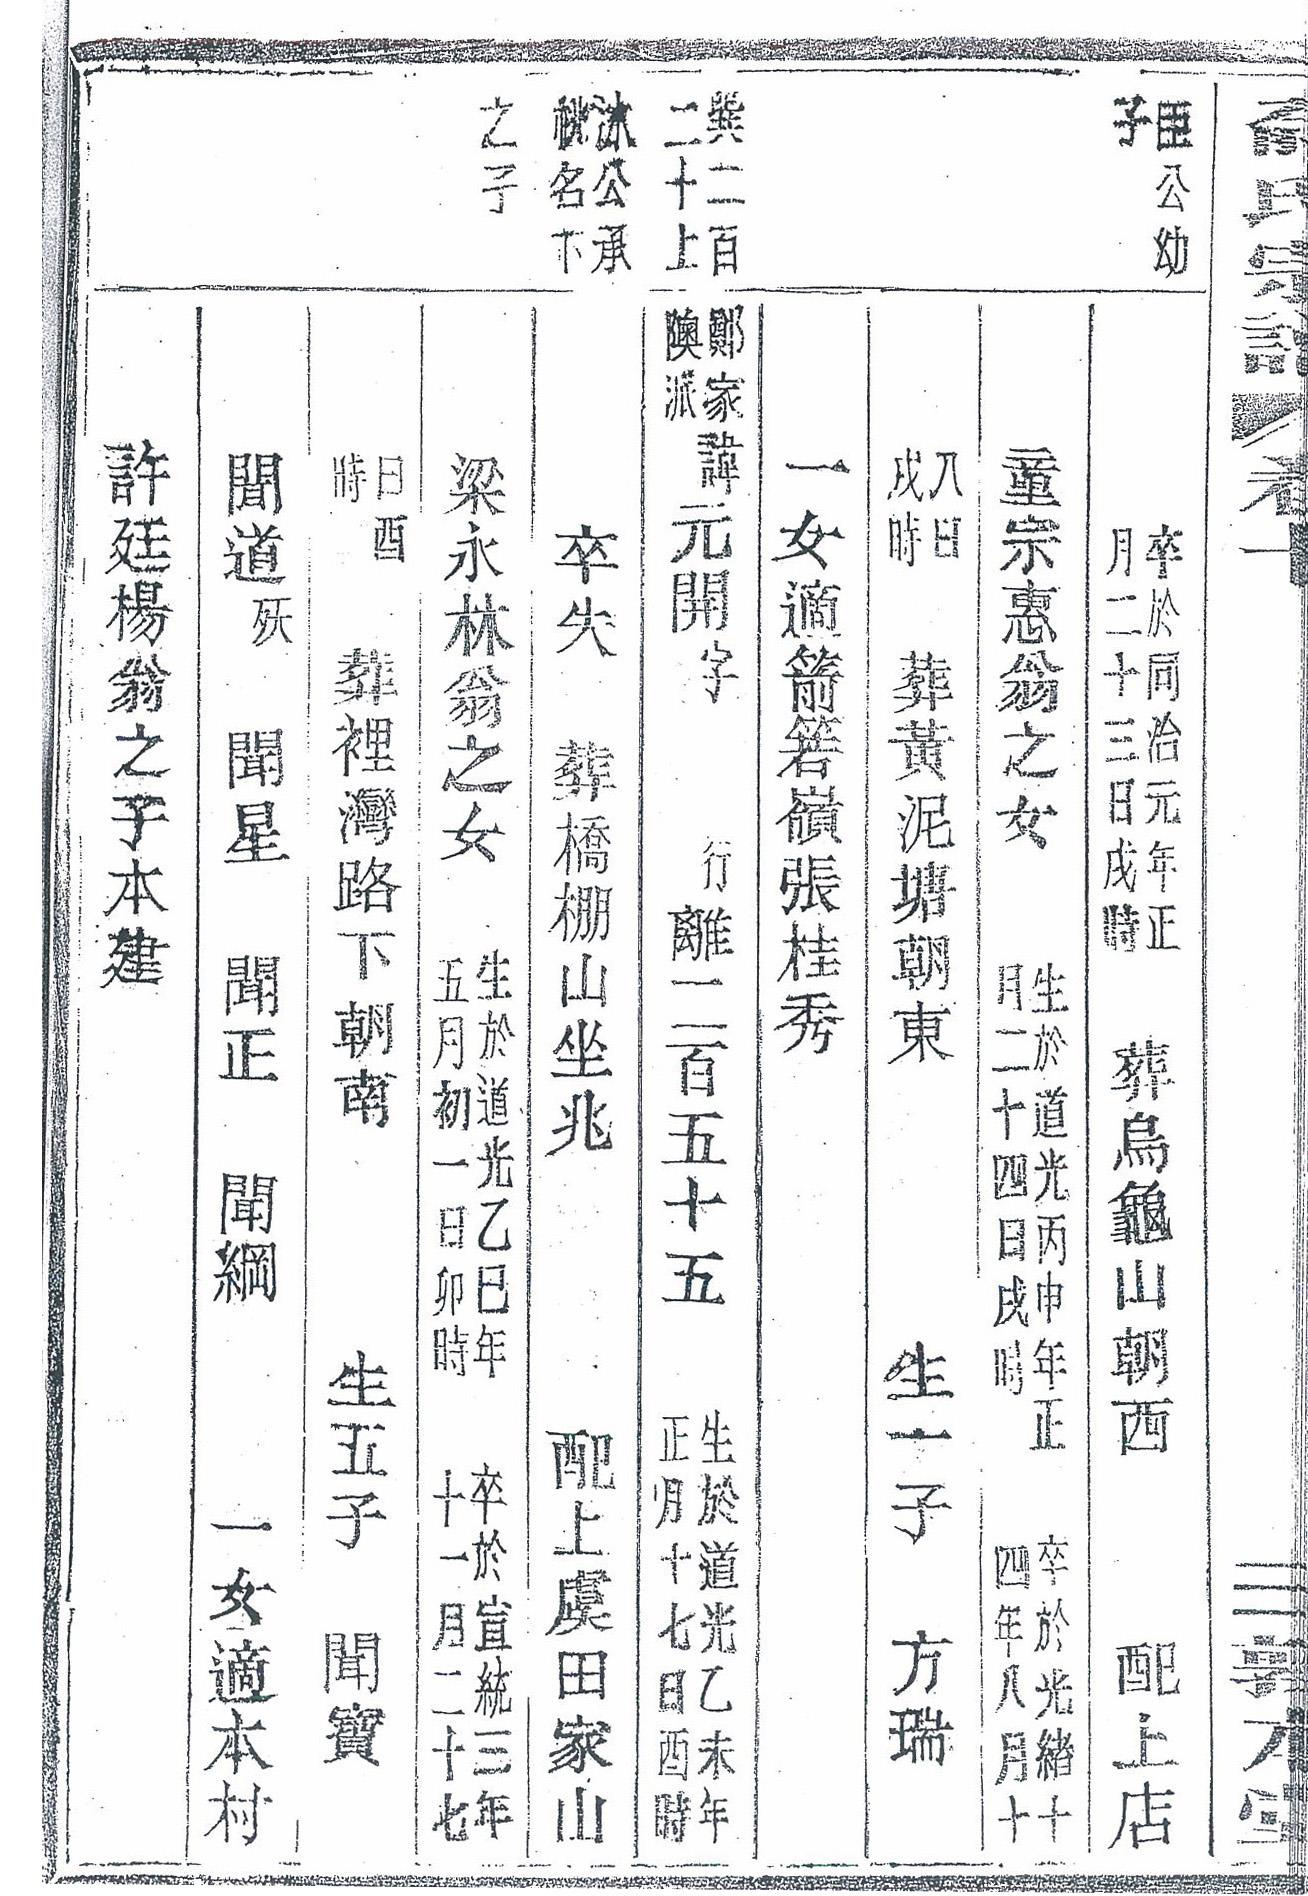 氏宗譜 卷十
臣公幼
子
卒於同治元年正
月二十三日戌時
葬烏龜山朝西 配上店
童宗惠翁之女
生於道光丙申年正
月二十四日戌時
卒於光緒十
四年八月十
八日
戌時
葬黃泥塘朝東 生一子 方瑞
一女適箭箬嶺張桂秀
巽二百
二十上
鄭家
陝派
諱元開字 行離一二百五十五
生於道光乙未年
正月十七日酉時
沐公承
祧名下
卒失 葬橋棚山坐兆 配上虞田家山
之子
梁永林翁之女
生於道光乙巳年
五月初一日卯時
卒於宣統三年
十一月二十七
日酉
時
葬裡灣路下朝南 生五子 聞寶
聞道殀 聞星 聞正 聞綱 一女適本村
許廷楊翁之子本建